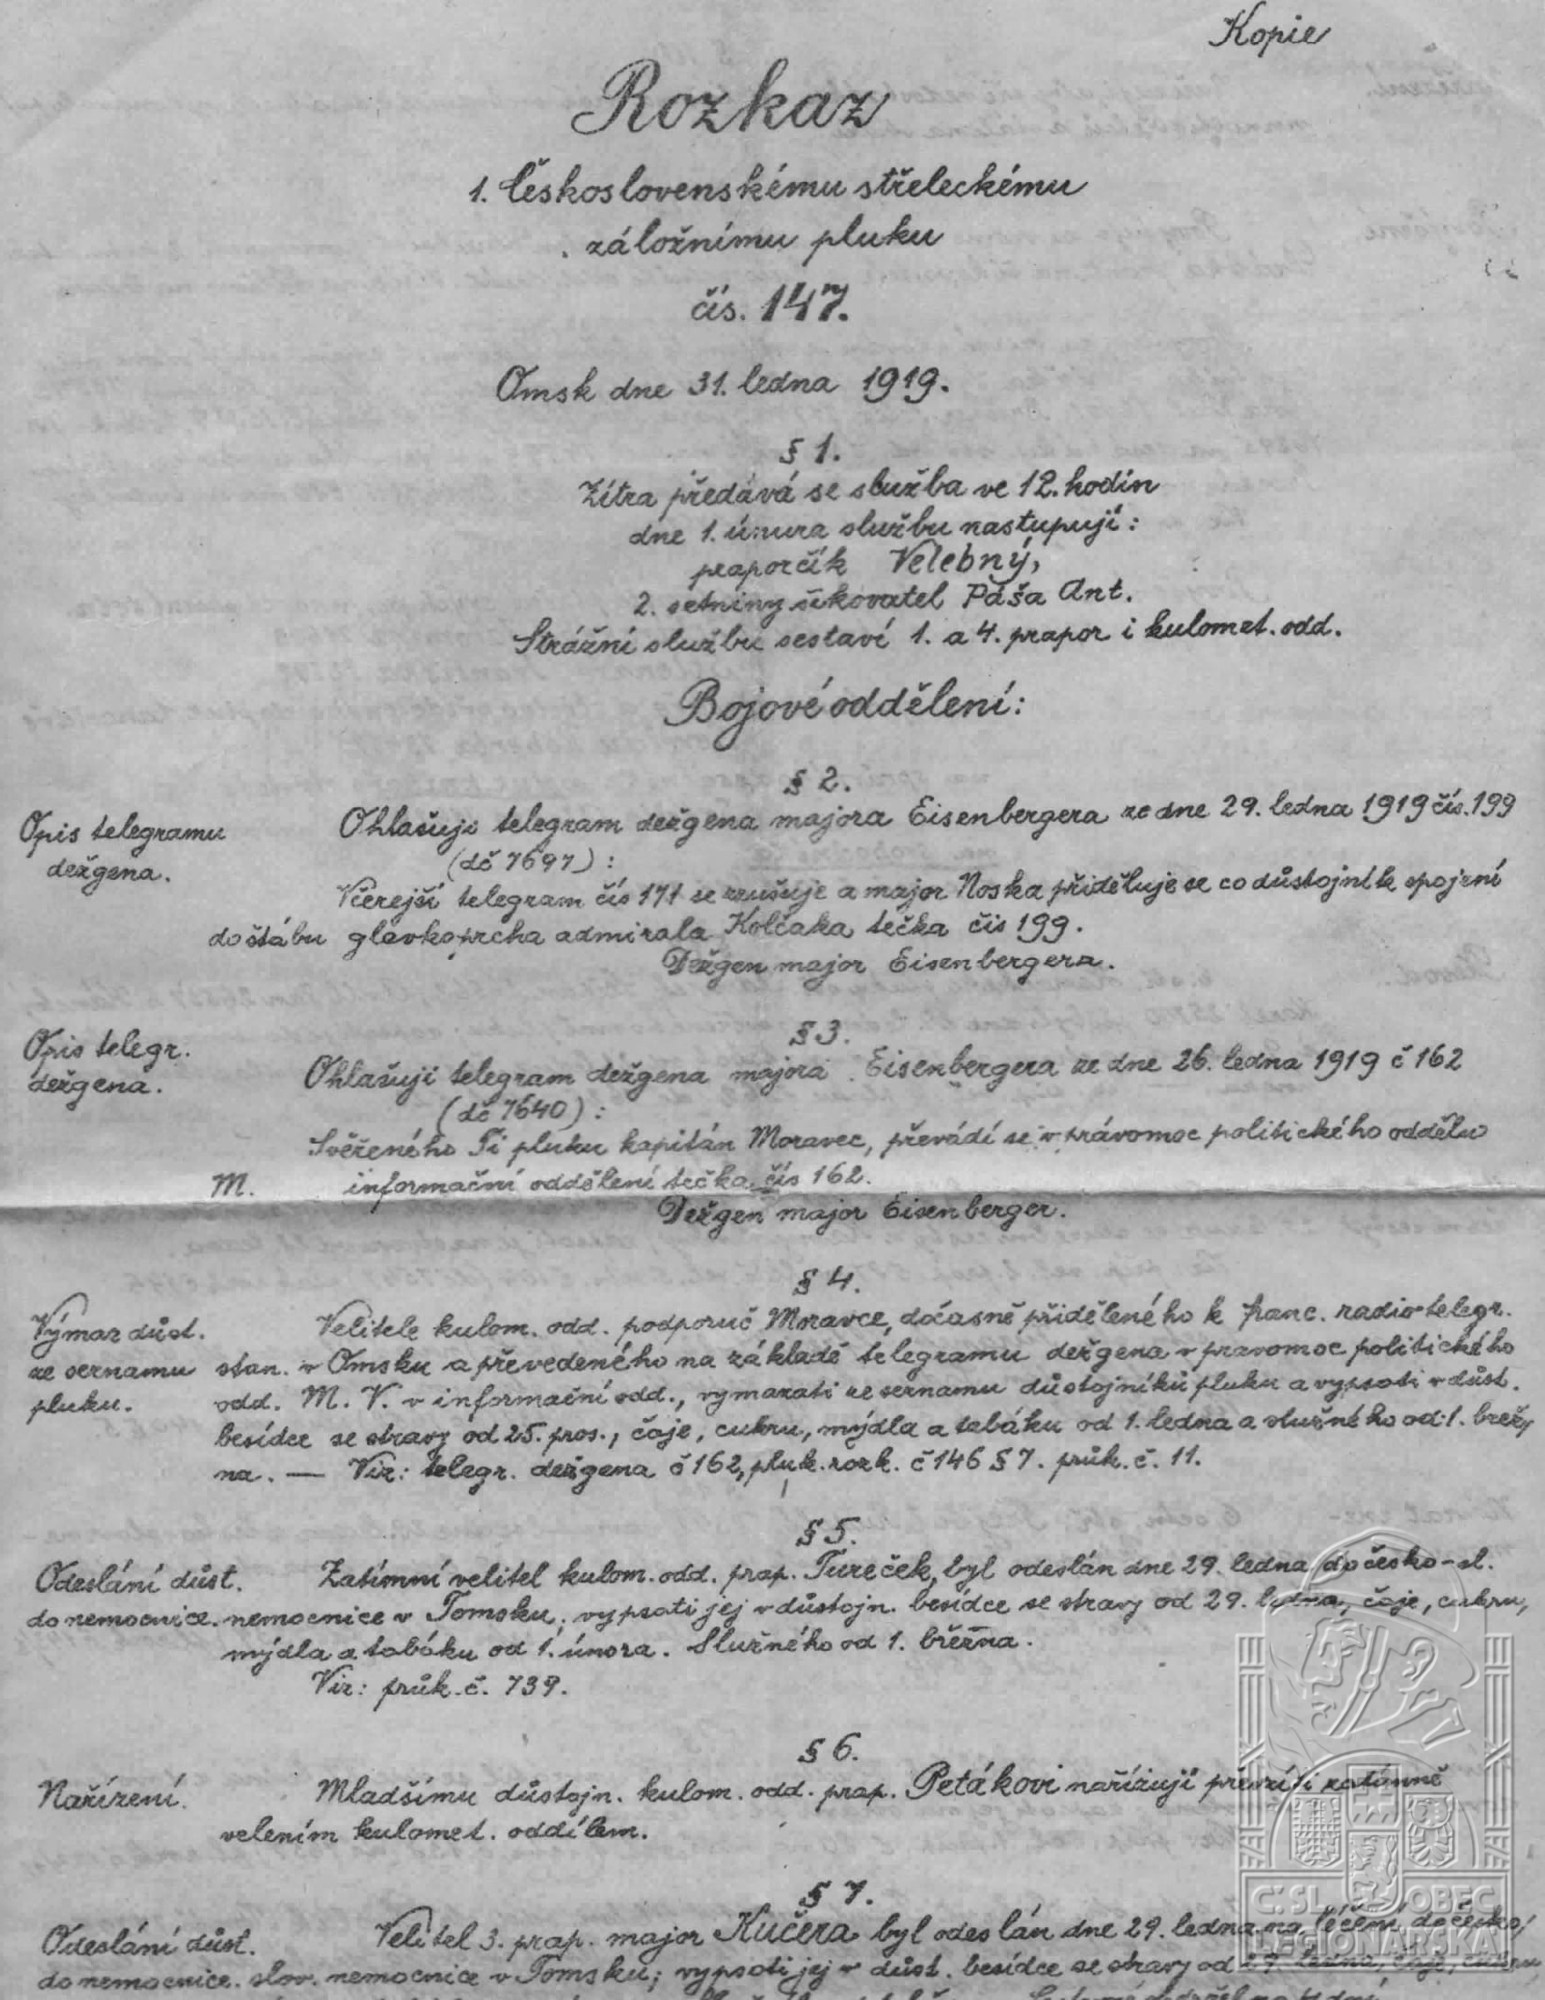 Kopie
Rozkaz
1. Československému střeleckému
záložnímu pluku
čís. 147.
Omsk dne 31. ledna 1919.
§ 1.
Zítra předává se služba ve 12. hodin
dne 1. února službu nastupují:
praporčík Velebný,
2. setniny šikovatel Páša Ant.
Strážní službu sestaví 1. a 4. prapor i kulomet. odd.
Bojové oddělení:
§ 2.
Opis telegramu dežgena.
Ohlašuji telegram dežgena majora Eisenbergera ze dne 29. ledna 1919 čís. 199
(dč 7697):
Včerejší telegram čís 171 se zrušuje a major Noska přiděluje se co důstojník spojení
do štábu glavkoprcha admirala Kolčaka tečka čis 199.
Dežgen major Eisenbergera.
§ 3.
Opis telegr. dežgena.
Ohlašuji telegram dežgena majora Eisenbergera ze dne 26. ledna 1919 č 162
(dč 7640):
Svěřeného Ti pluku kapitán Moravec, převádí se v právomoc politického oddělu
M. informační oddělení tečka čís 162.
Dežgen major Eisenberger.
§ 4.
Výmaz důst. ze seznamu pluku.
Velitele kulom. odd. podporuč Moravce, dočasně přiděleného k franc. radiotelegr.
stan. v Omsku a převedeného na základě telegramu dežgena v pravomoc politického
odd. M. V. v informační odd., vymazati ze seznamu důstojníků pluku a vypsati v důst.
besídce se stravy od 25. pros., čaje, cukru, mýdla a tabáku od 1. ledna a služného od 1. břez
na. — Viz: telegr. dežgena č 162, pluk. rozk. č 146 § 7. průk. č. 11.
§ 5.
Odeslání důst. do nemocnice.
Zatímní velitel kulom. odd. prap. Tureček, byl odeslán dne 29. ledna do česko-sl.
nemocnice v Tomsku; vypsati jej v důstojn. besídce se stravy od 29. ledna, čaje, cukru,
mýdla a tabáku od 1. února. Služného od 1. března.
Viz: průk. č. 739.
§ 6.
Nařízení.
Mladšímu důstojn. kulom. odd. prap. Petákovi nařizuji převzíti zatímně
velením kulomet. oddílem.
§ 7.
Odeslání důst. do nemocnice.
Velitel 3. prap. major Kučera byl odeslán dne 29. ledna na léčení do česko/
slov. nemocnice v Tomsku; vypsati jej v důst. besídce se stravy od 29. ledna, čaje, cukru
Č'SL. OBEC
LEGIONÁŘSKÁ